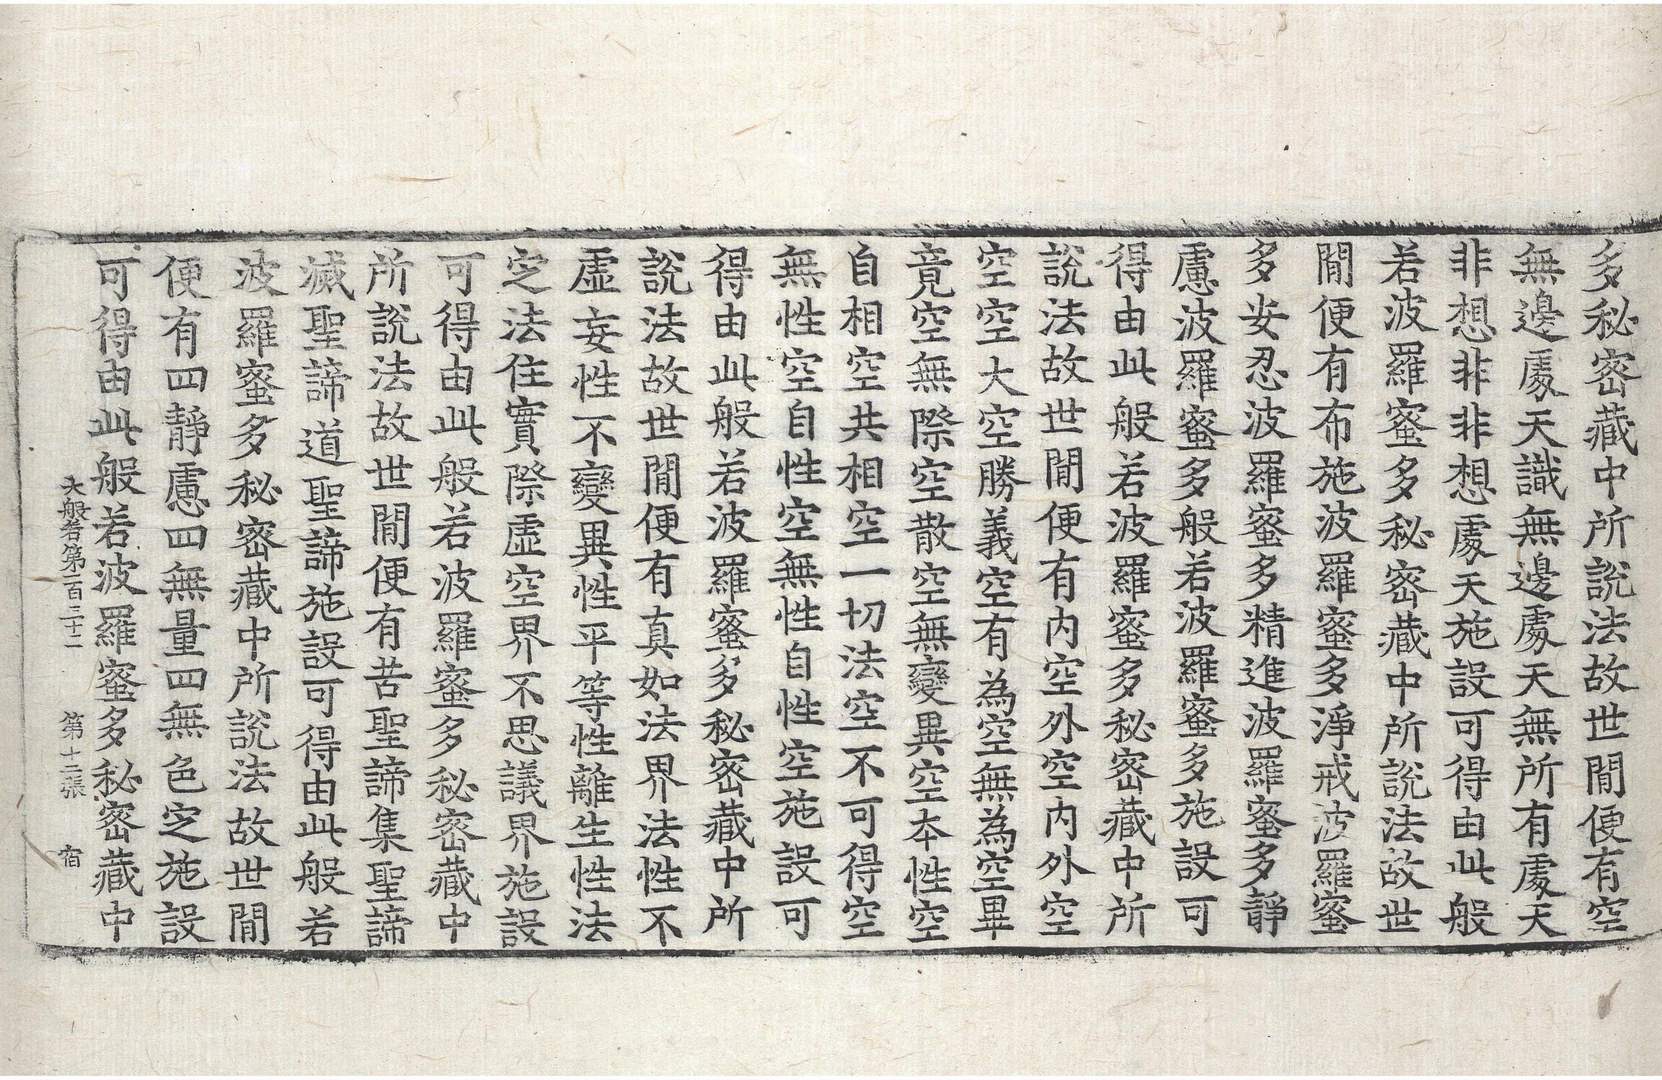 多秘密藏中所說法故世閒便有空
無邊處天識無邊處天無所有處天
非想非非想處天施設可得由此般
若波羅蜜多秘密藏中所說法故世
閒便有布施波羅蜜多淨戒波羅蜜
多安忍波羅蜜多精進波羅蜜多靜
慮波羅蜜多般若波羅蜜多施設可
得由此般若波羅蜜多秘密藏中所
說法故世閒便有内空外空内外空
空空大空勝義空有為空無為空畢
竟空無際空散空無變異空本性空
自相空共相空一切法空不可得空
無性空自性空無性自性空施設可
得由此般若波羅蜜多秘密藏中所
說法故世閒便有真如法界法性不
虛妄性不變異性平等性離生性法
定法住實際虛空界不思議界施設
可得由此般若波羅蜜多秘密藏中
所說法故世閒便有苦聖諦集聖諦
滅聖諦道聖諦施設可得由此般若
波羅蜜多秘密藏中所說法故世閒
便有四靜慮四無量四無色定施設
可得由此般若波羅蜜多秘密藏中
大般若第一百三十二 第十二張 宿